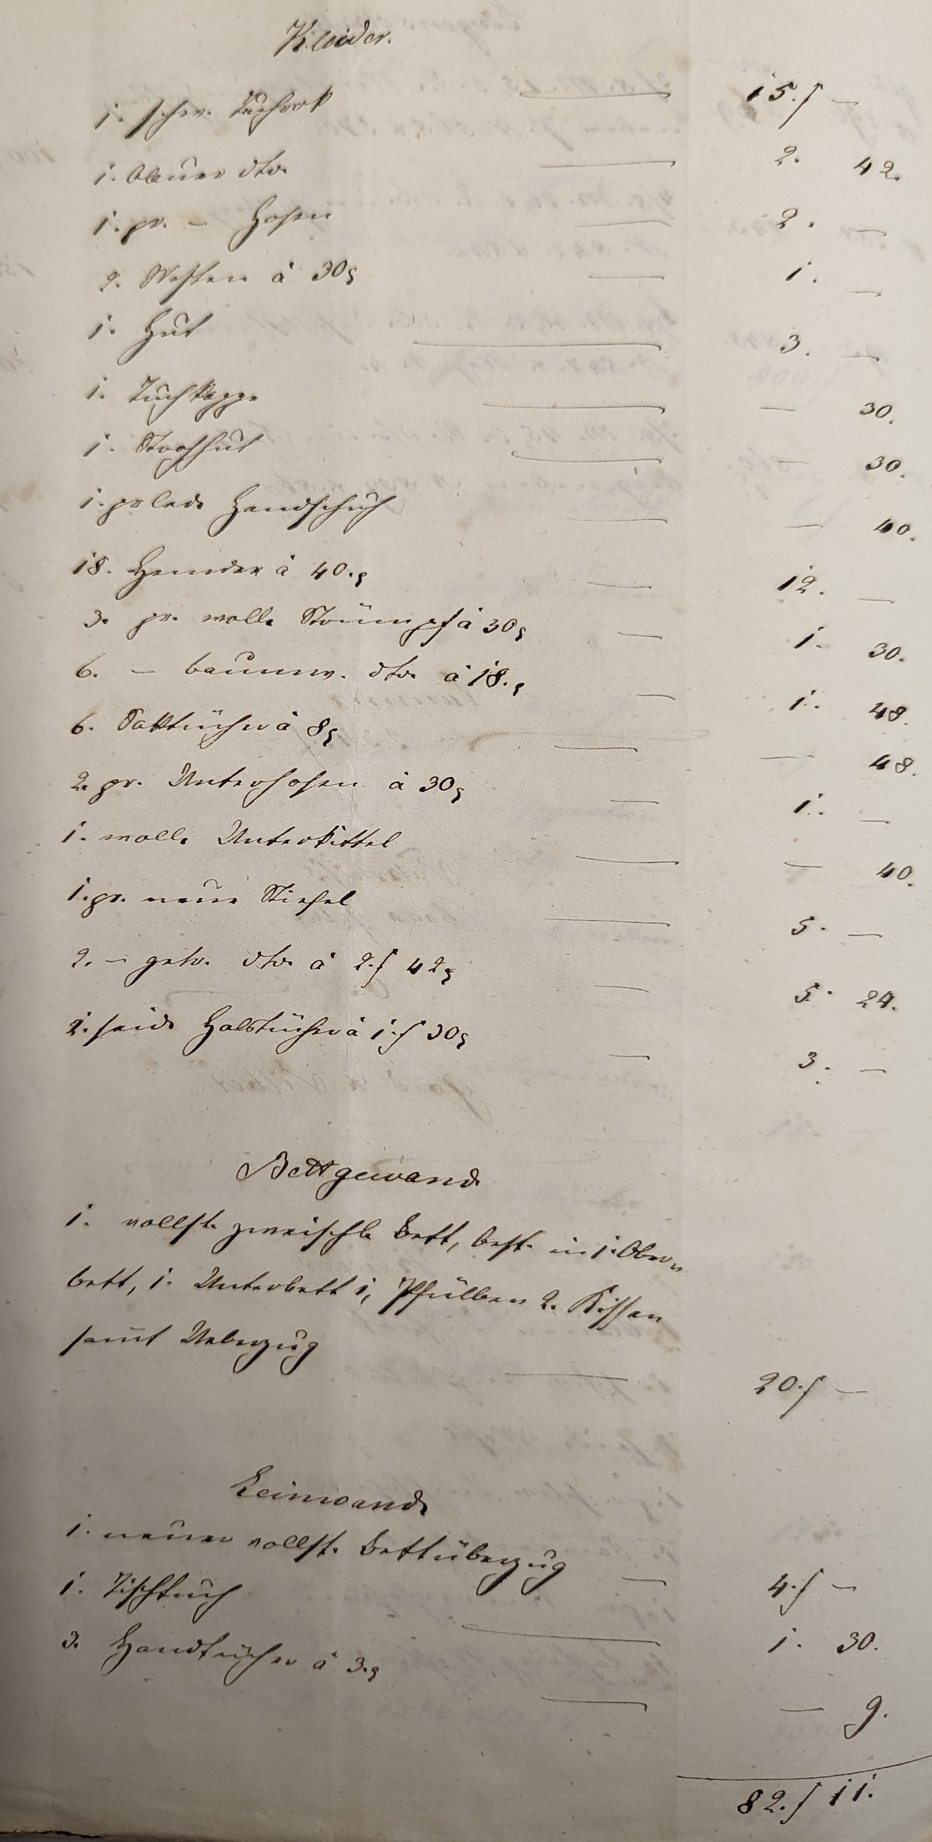 Kleider.
1. schw. Tuchrok — 15. f —
1. blauer dto. — 2. 42.
1. pr. – Hosen — 2. —
2. Westen à 30 x — 1. —
1. Hut — 3. —
1. Tuchkappe — — 30.
1. Strohhut — — 30.
1. pr led. Handschuh — — 40.
18. Hemder à 40. x — 12. —
3. pr. wolle. Strümpf à 30 x — 1. 30.
6. – baumw. dto. à 18. x — 1. 48.
6. Saktücher à 8 x — — 48.
2. pr. Unterhosen à 30 x — 1. —
1. wolle. Unterkittel — — 40.
1. pr. neue Stiefel — 5. —
2. – getr. dto. à 2. f 42 x — 5. 24.
2. seide Halstücher à 1. f 30 x — 3. —
Bettgewand
1. vollst. zweischl. Bett, best. in 1. Ober-
bett, 1. Unterbett 1, Pfülben 2. Kissen
samt Ueberzug — 20. f —
Leinwand
1. neuer vollst. Bettüberzug — 4. f —
1. Tischtuch — 1. 30.
3. Handtücher à 3. x — — 9.
82. f 11.